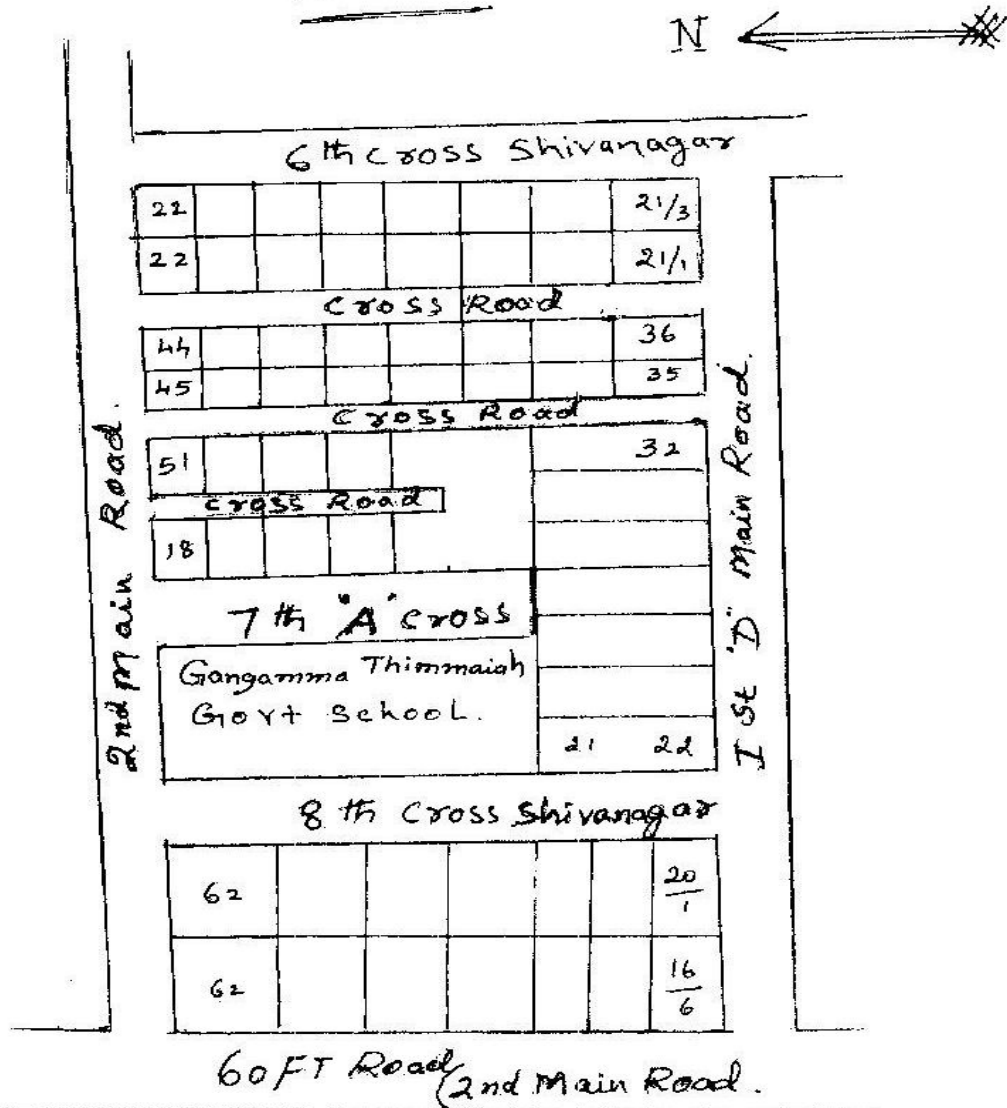 N
6th Cross Shivanagar
22 21/3
22 21/1
Cross Road
44 36
45 35
Cross Road
51 32
Cross Road
18
7th "A" Cross
Gangamma Thimmaiah
Govt School.
21 22
2nd Main Road.
Ist "D" Main Road.
8th Cross Shivanagar
62 20/1
62 16/6
60 FT Road (2nd Main Road.